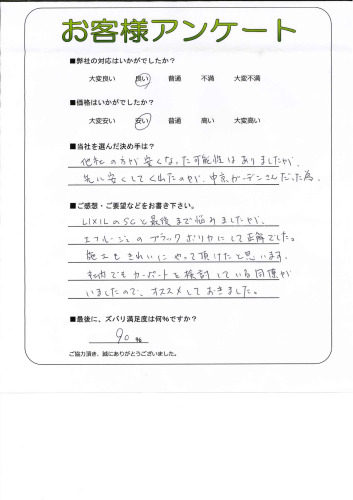 お客様アンケート
■弊社の対応はいかがでしたか？
大変良い 良い 普通 不満 大変不満
■価格はいかがでしたか？
大変安い 安い 普通 高い 大変高い
■当社を選んだ決め手は？
他社の方が安くなった可能性はありましたが、
先に安くしてくれたのが、東京ガーデンさんだった為。
■ご感想・ご要望などをお書き下さい。
LIXILのSCと最後まで悩みましたが、
エフルージュのブラックポリカにして正解でした。
施工もきれいにやって頂けたと思います。
社内でもカーポートを検討している同僚が
いましたので、オススメしておきました。
■最後に、ズバリ満足度は何％ですか？
90 %
ご協力頂き、誠にありがとうございました。